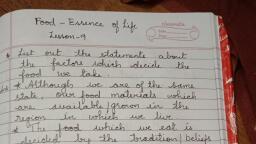 Food - Essence of Life
Lesson-9
List out the statements about
the factors which decide the
food we take.
* Although we are of the same
state, our food materials which
are available/grown in the
region in which we live
* The food which we eat is
decided by the tradition/beliefs